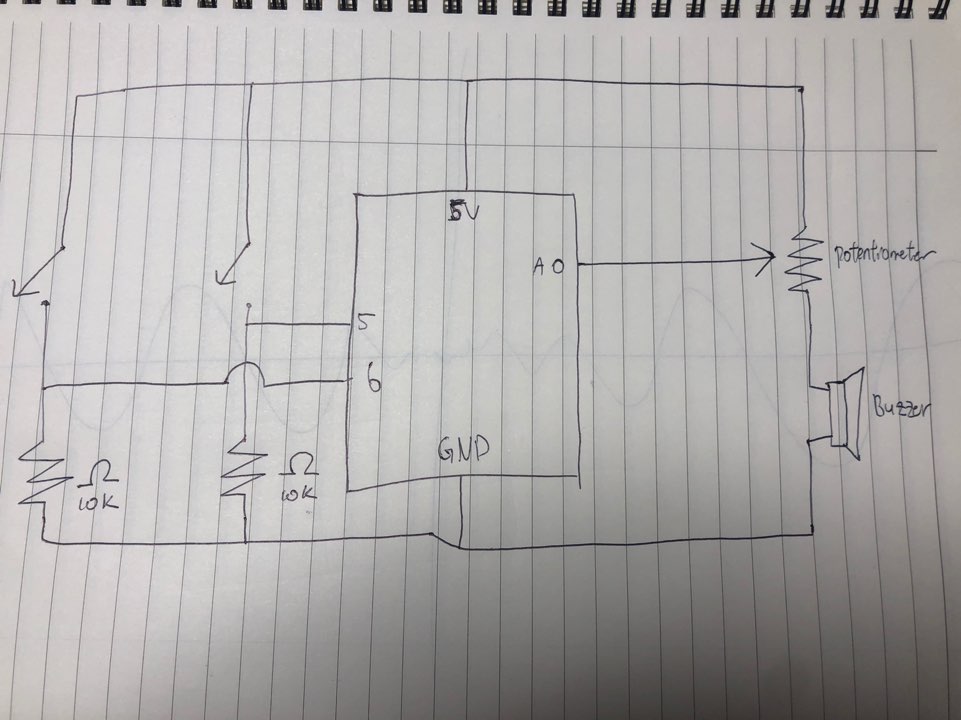 5V
A0
potentiometer
5
6
Buzzer
GND
Ω
10K
Ω
10K